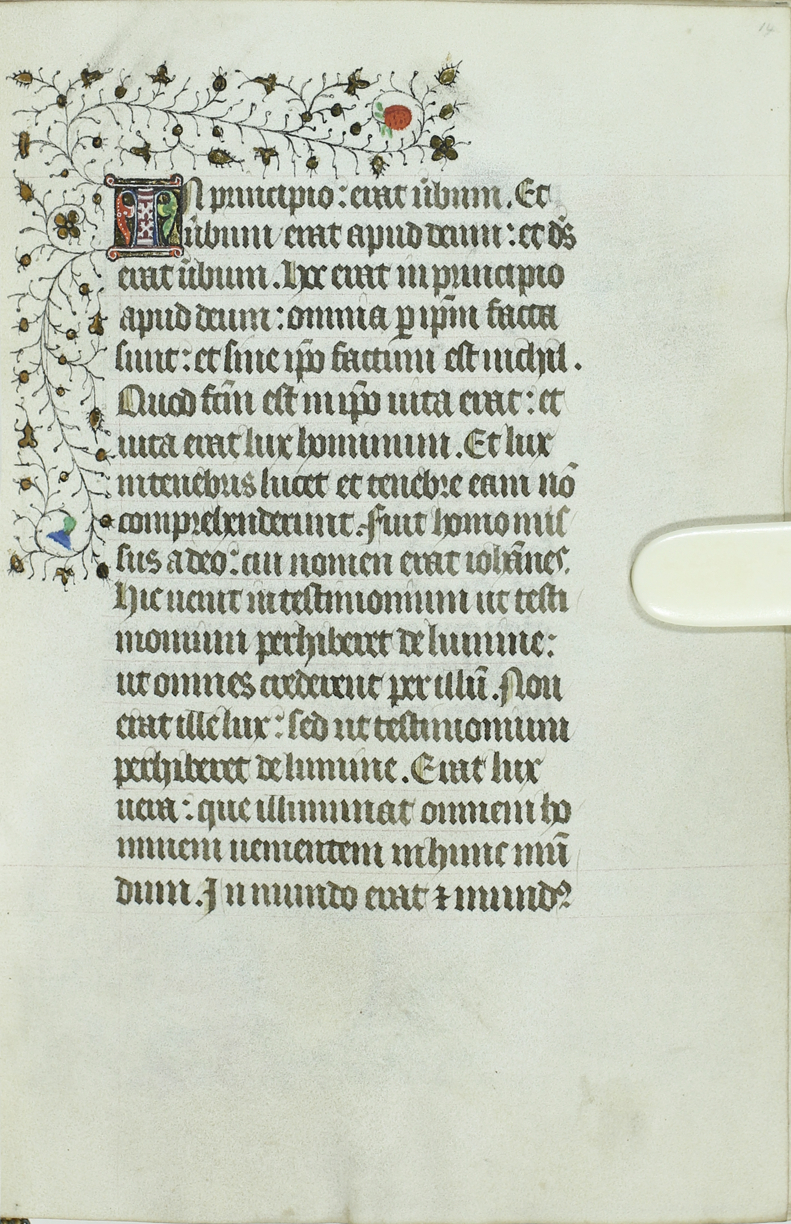 14
In principio : erat ũbum . Et
ũbum erat apud deum : et dṡ
erat ũbum . Hoc erat in principio
apud deum : omnia ꝑ ip̄m facta
sunt : et sine ip̄o factum est nichil .
Quod fcm̄ est in ip̄o uita erat : et
uita erat lux hominum . Et lux
in tenebris lucet et tenebre eam nō
comprehenderunt . Fuit homo mis
sus a deo : cui nomen erat ioh̄anes .
Hic uenit in testimonium ut testi
monium perhiberet de lumine :
ut omnes crederent per illū . Non
erat ille lux : sed ut testimonium
perhiberet de lumine . Erat lux
uera : que illuminat omnem ho
minem uenientem in hunc mū
dum . In mundo erat ⁊ mundꝰ